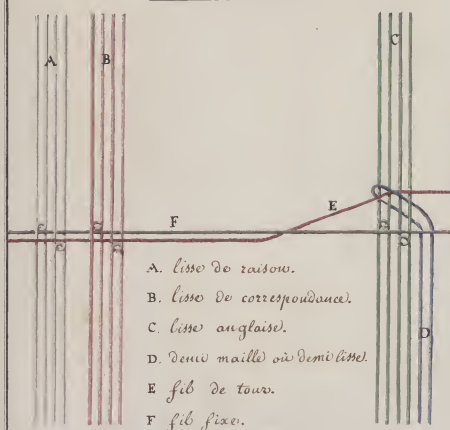 A
B
C
E
F
A. lisse de raison.
B. lisse de correspondance.
C. lisse anglaise.
D. demi maille où demi lisse.
D
E fil de tour.
F fil fixe.